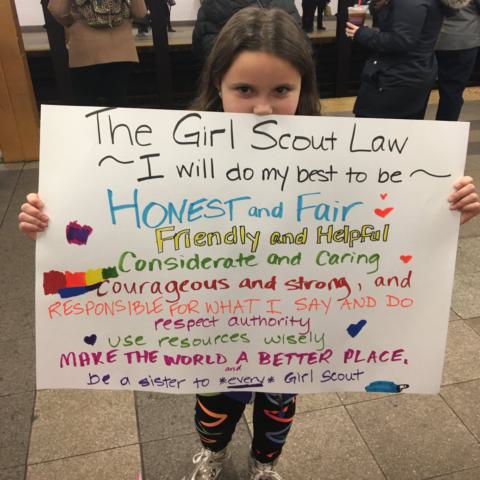 The Girl Scout Law
~ I will do my best to be ~
HONEST and FaiR
Friendly and Helpful
Considerate and Caring
courageous and strong, and
RESPONSIBLE FOR WHAT I SAY AND DO
respect authority
use resources wisely
MAKE THE WORLD A BETTER PLACE.
and
be a sister to *every* Girl Scout